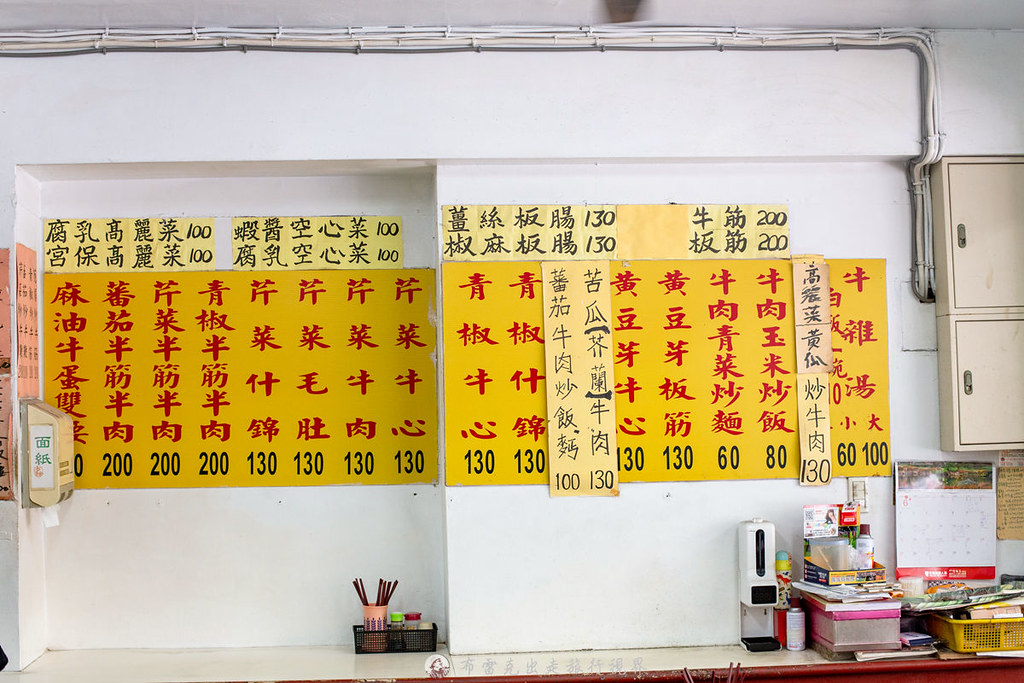 腐乳高麗菜100
宮保高麗菜100
蝦醬空心菜100
腐乳空心菜100
薑絲板腸130
椒麻板腸130
牛筋200
板筋200
麻油牛蛋雙
蕃茄半筋半肉 200
芹菜半筋半肉 200
青椒半筋半肉 200
芹菜什錦 130
芹菜毛肚 130
芹菜牛肉 130
芹菜牛心 130
青椒牛心 130
青椒什錦 130
蕃茄牛肉炒飯、麵 100
苦瓜(芥蘭)牛肉 130
黃豆芽牛心 130
黃豆芽板筋 130
牛肉青菜炒麵 60
牛肉玉米炒飯 80
高麗菜 黃瓜 炒牛肉 130
白飯
牛雜湯 小 大 60 100
面紙